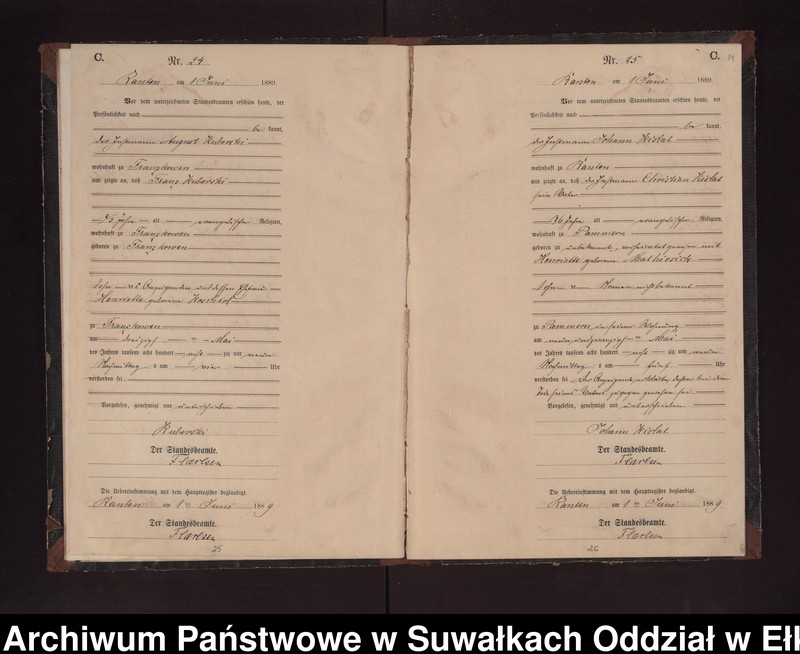 C.
Nr. 24
Kanten am 1 Juni 1889.
Vor dem unterzeichneten Standesbeamten erschien heute, der
Persönlichkeit nach
be kannt,
der Instmann August Kuberski
wohnhaft zu Franzkowen
und zeigte an, daß Franz Kuberski
Jahre alt evangelischer Religion,
wohnhaft zu Franzkowen
geboren zu Franzkowen
Sohn des Anzeigenden und dessen Ehefrau
Henriette geborene
zu Franzkowen
am dreißigsten Mai
des Jahres tausend acht hundert acht zig und neun
Nachmittag s um vier Uhr
verstorben sei
Vorgelesen, genehmigt und unterschrieben
Kuberski
Der Standesbeamte.
Die Uebereinstimmung mit dem Hauptregister beglaubigt.
Kanten am 1ten Juni 1889
Der Standesbeamte.
25
Nr. 25
C.
Kanten am 1 Juni 1889.
Vor dem unterzeichneten Standesbeamten erschien heute, der
Persönlichkeit nach
be kannt,
der Instmann Johann Kislat
wohnhaft zu Kanten
und zeigte an, daß der Instmann Christian Kislat
sein Vater
76 Jahre alt evangelischer Religion,
wohnhaft zu Pammern
geboren zu unbekannt, verheiratet gewesen mit
Henriette geborene
Sohn de Namen nicht bekannt
zu Pammern in seiner Wohnung
am neunundzwanzigsten Mai
des Jahres tausend acht hundert acht zig und neun
Nachmittag s um fünf Uhr
verstorben sei Der Anzeigende erklärte, daß er bei dem
Tode seines Vaters zugegen gewesen sei
Vorgelesen, genehmigt und unterschrieben
Johann Kislat
Der Standesbeamte.
Die Uebereinstimmung mit dem Hauptregister beglaubigt.
Kanten am 1ten Juni 1889
Der Standesbeamte.
26
Archiwum Państwowe w Suwałkach Oddział w Ełk